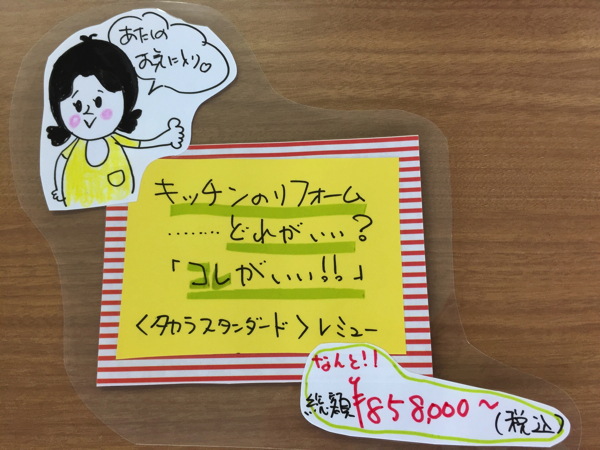 あたしの
お気に入り♡
キッチンのリフォーム
........どれがいい?
「コレがいい!!」
<タカラスタンダード>レミュー
なんと!!
総額¥858,000～(税込)